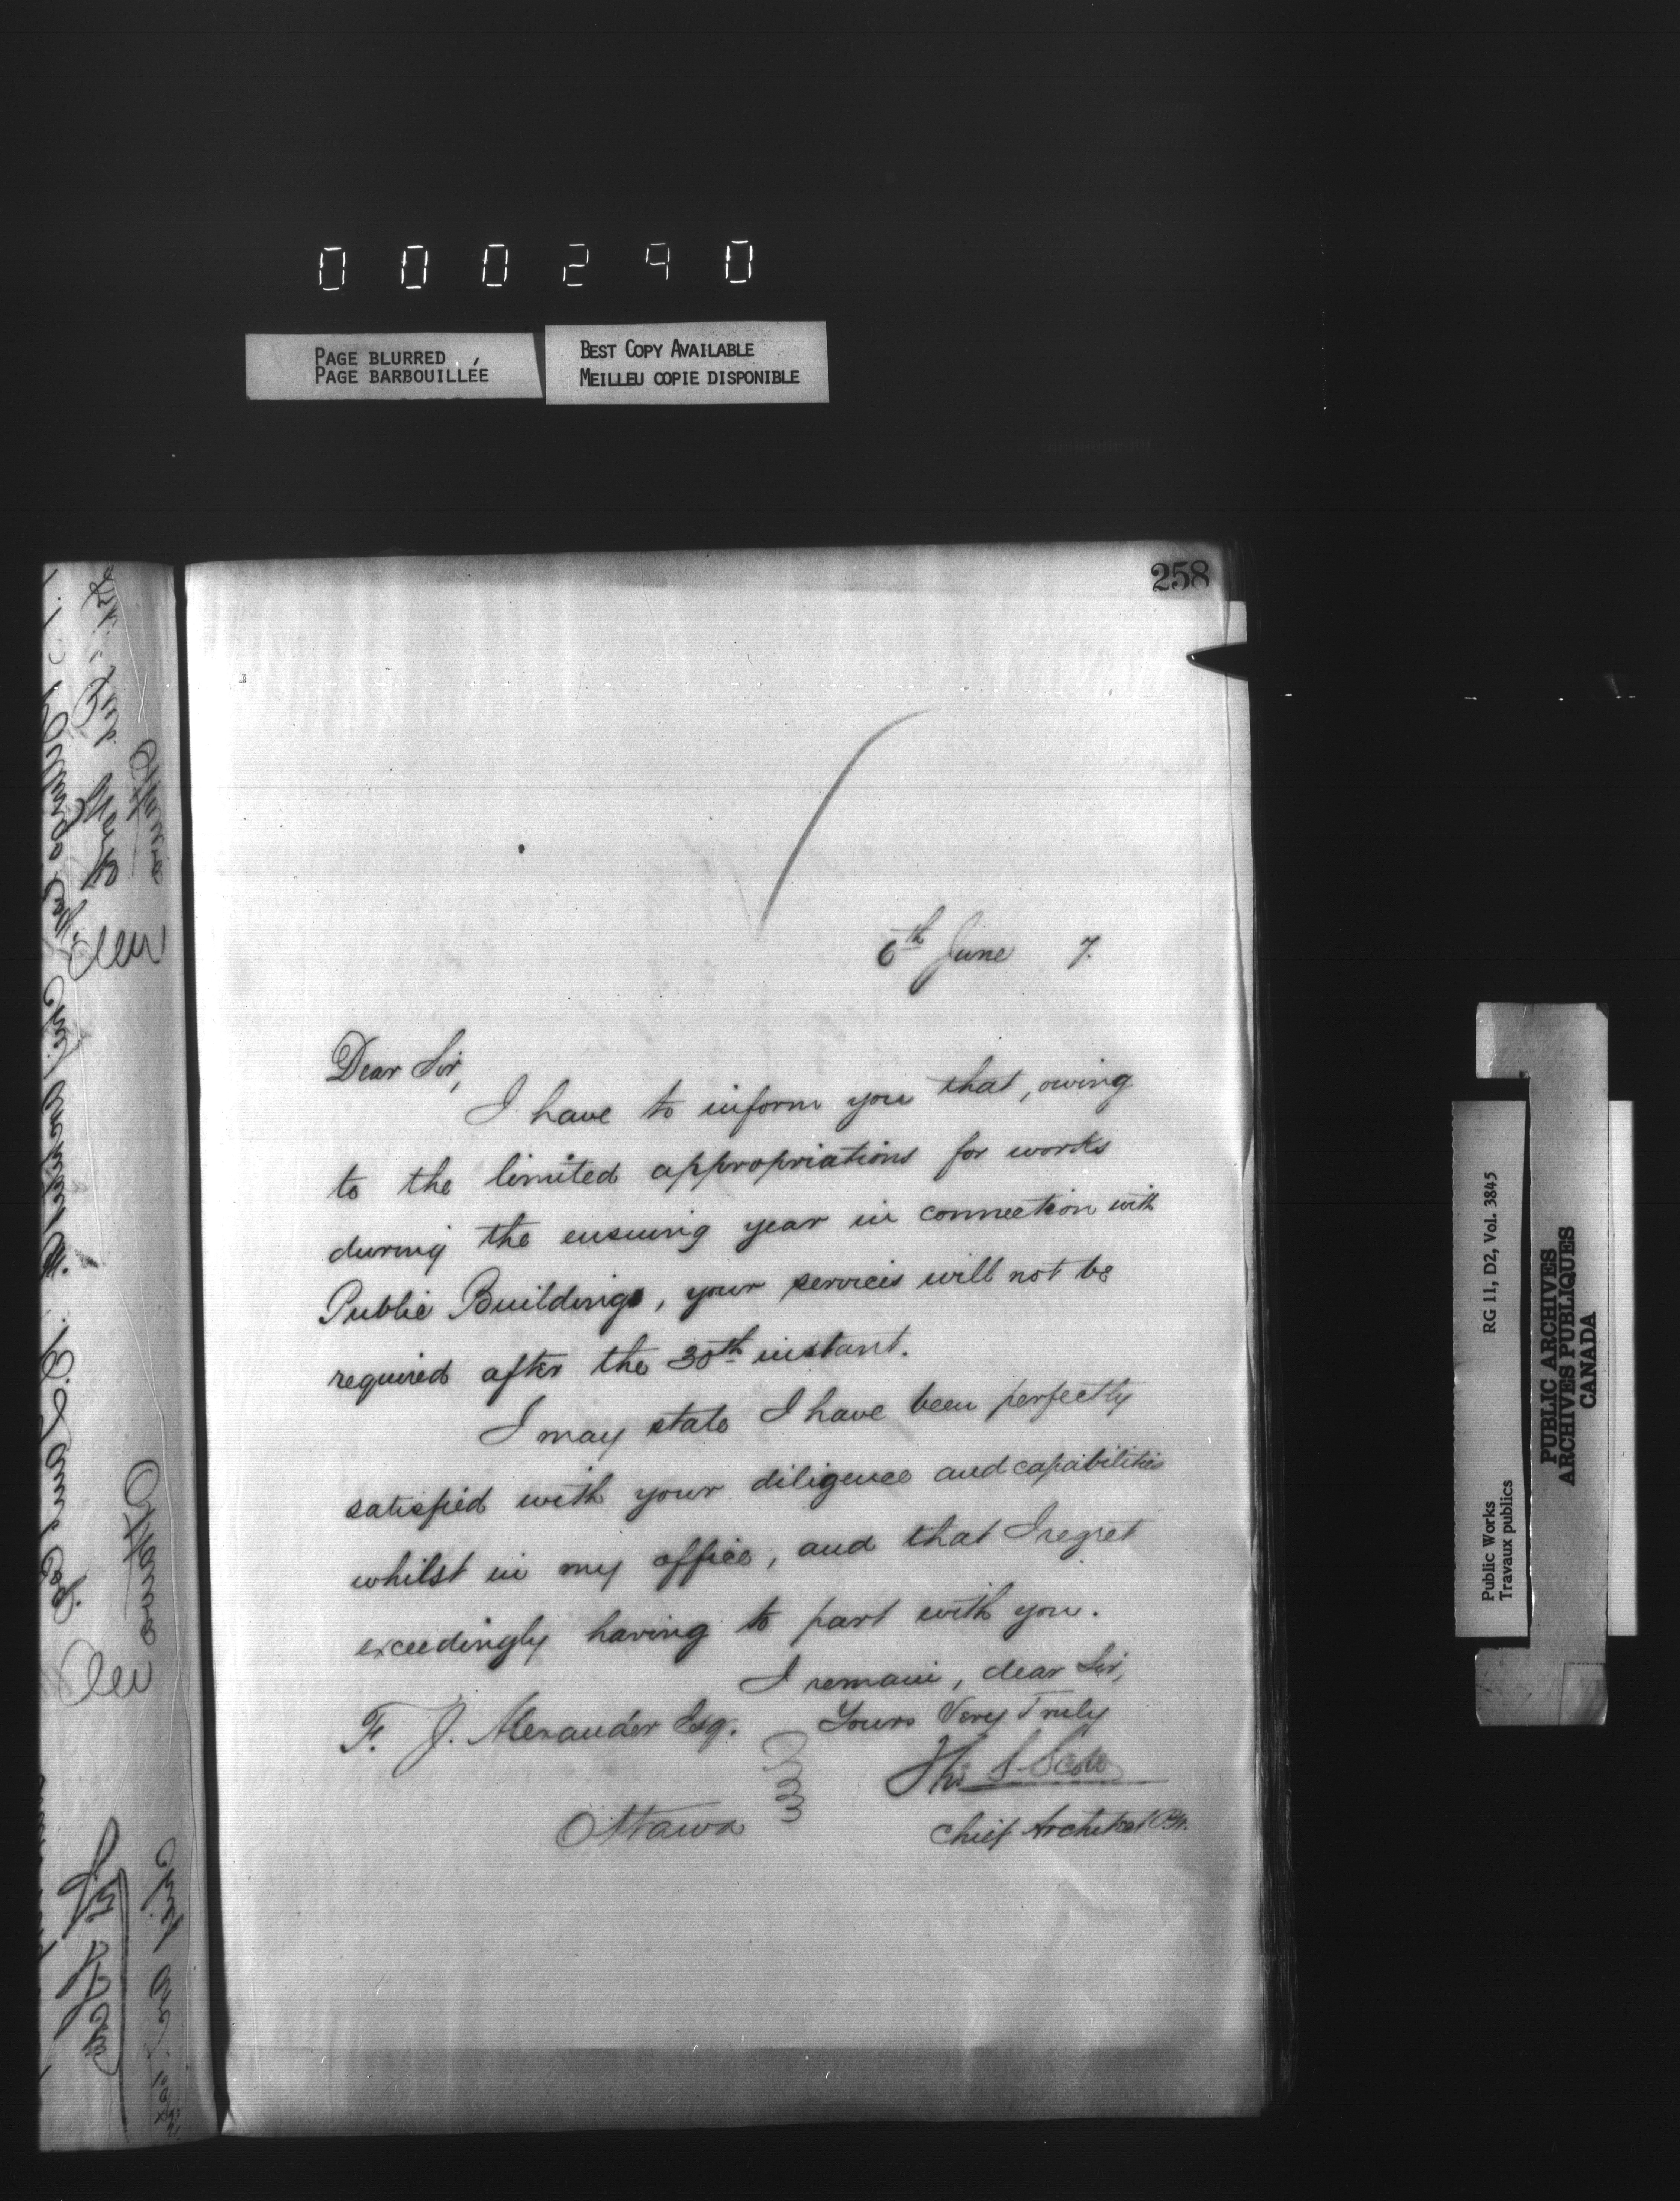 000290
PAGE BLURRED
PAGE BARBOUILLÉE
BEST COPY AVAILABLE
MEILLEU COPIE DISPONIBLE
258
6th June 7.
Dear Sir,
I have to inform you that, owing
to the limited appropriations for works
during the ensuing year in connection with
Public Buildings, your services will not be
required after the 30th instant.
I may state I have been perfectly
satisfied with your diligence and capabilities
whilst in my office, and that I regret
exceedingly having to part with you.
I remain, dear Sir,
Yours Very Truly
F. J. Alexander Esq.
Thos S. Scott
Ottawa
Chief Architect
RG 11, D2, Vol. 3845
Public Works
Travaux publics
PUBLIC ARCHIVES
ARCHIVES PUBLIQUES
CANADA